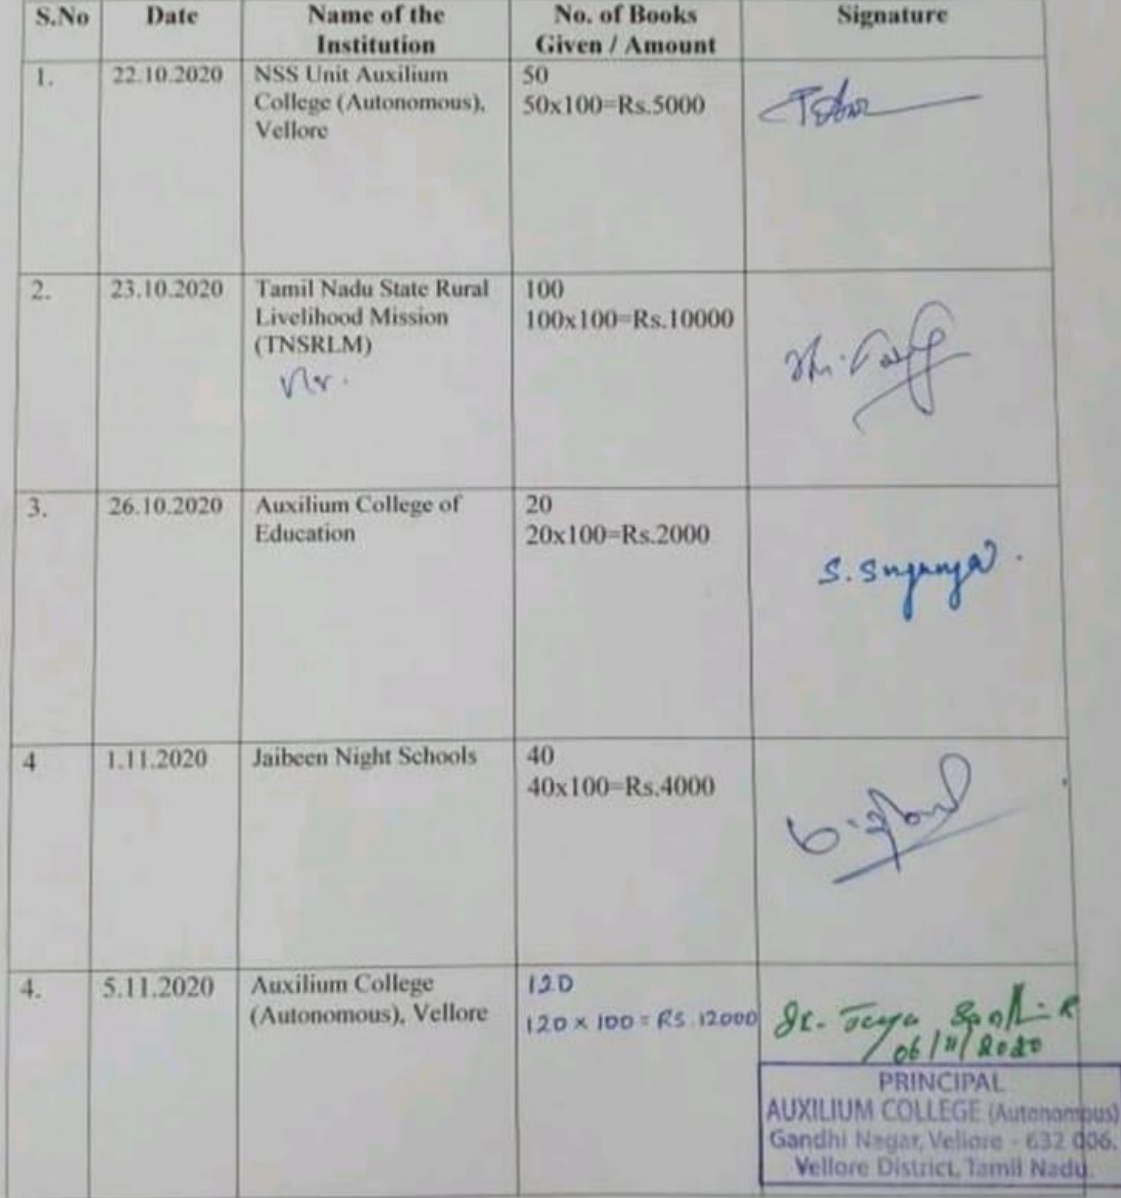 S.No Date Name of the Institution No. of Books Given / Amount Signature
1. 22.10.2020 NSS Unit Auxilium 50
College (Autonomous), 50x100=Rs.5000
Vellore
2. 23.10.2020 Tamil Nadu State Rural 100
Livelihood Mission 100x100=Rs.10000
(TNSRLM)
3. 26.10.2020 Auxilium College of 20
Education 20x100=Rs.2000
S. Suganya
4 1.11.2020 Jaibeen Night Schools 40
40x100=Rs.4000
4. 5.11.2020 Auxilium College 120
(Autonomous), Vellore 120 x 100 = RS. 12000
06/11/2020
PRINCIPAL
AUXILIUM COLLEGE (Autonomous)
Gandhi Nagar, Vellore - 632 006.
Vellore District, Tamil Nadu.